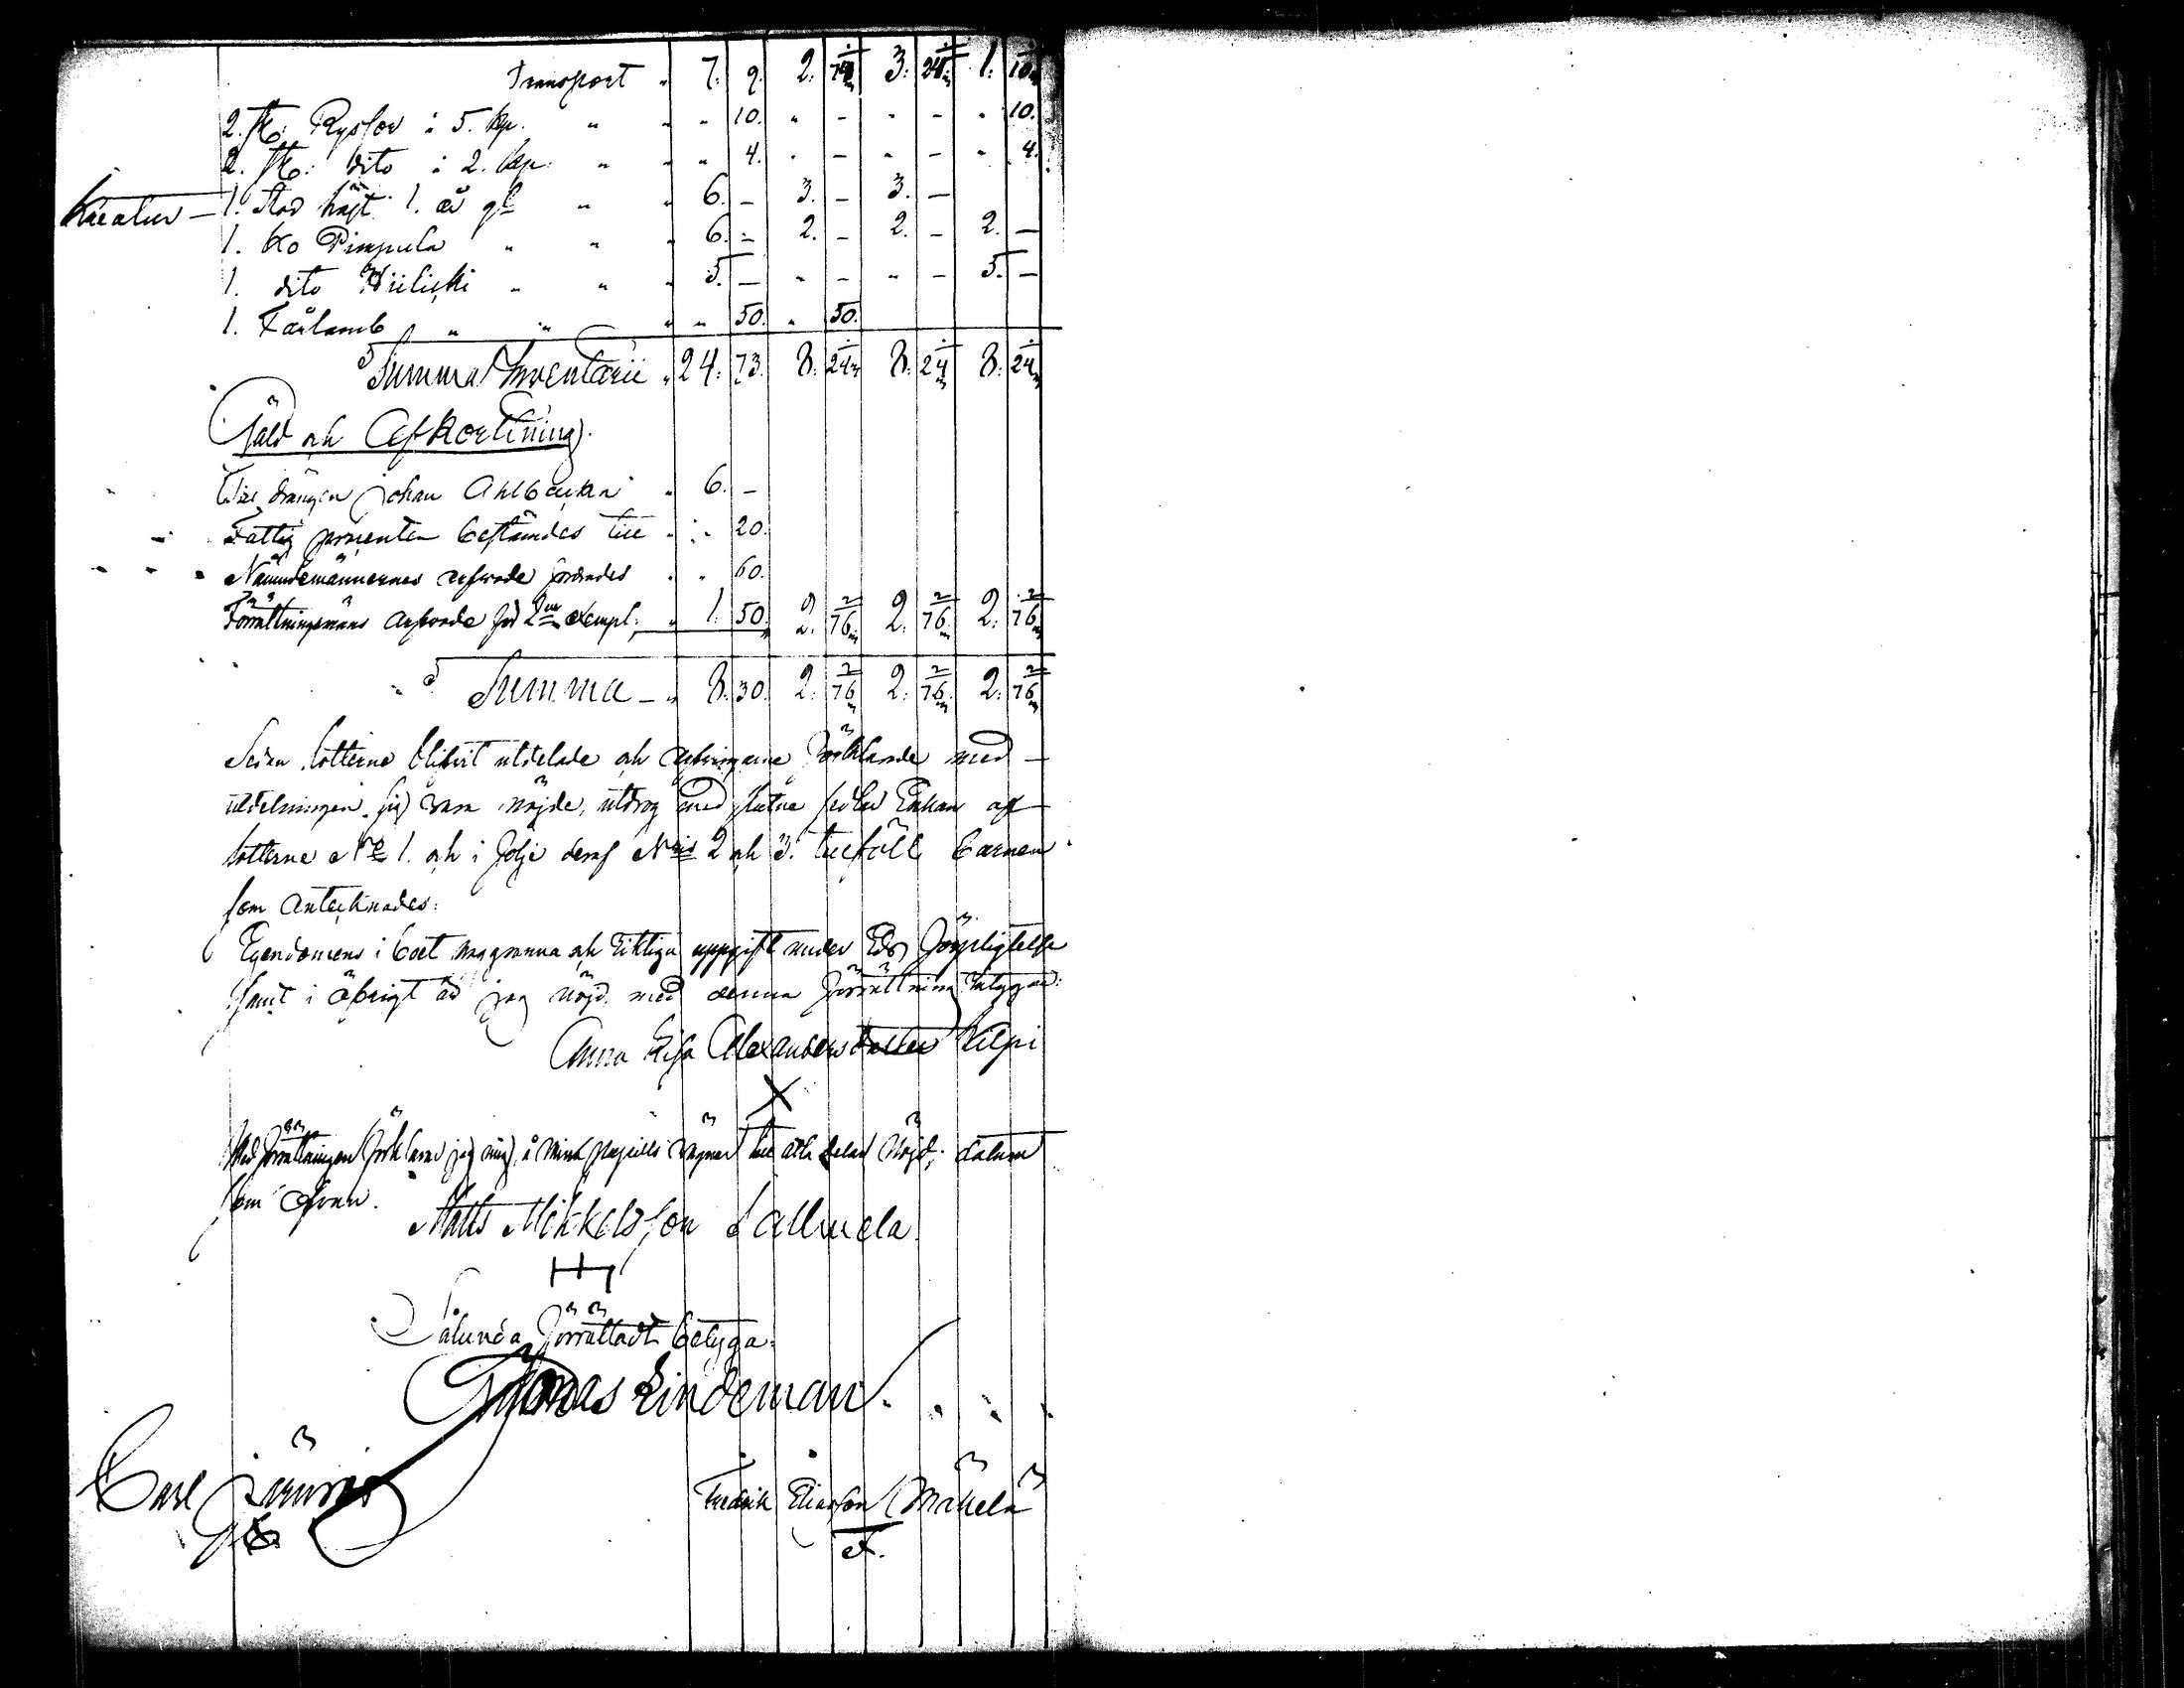 Transport " 7. 9. 2. 74 3. 24 1. 10
2. st: Ryslor i 5. kp. " " " 10. " - " - " 10.
2. st: dito i 2. kp " " " 4. " - " - " 4.
Kreatur - 1. Stod häst 1. år gl " " 6. - 3. - 3. -
1. Ko Pimpula " " " 6. - 2. - 2. - 2. -
1. dito Hiilicki " " " 5. - " - " - 5. -
1. Fårlamb " " " " 50. " 50.
Summa Inventarii " 24. 73. 8. 24 8. 24 8. 24
Gäld och Afkortning.
Till drängen Johan Ahlbacka " 6. -
Fattig procenten bestämdes till " " 20.
Nämndemännernes arfvode " " 60.
Förrättningsmans Arfvode för 2ne exempl: " 1. 50. 2. 2/76 2. 2/76 2. 2/76
Summa - " 8. 30. 2. 2/76 2. 2/76 2. 2/76
Sedan lotterne blifvit utdelade och arfvingarne förklarade med
utdelningen sig vara nöjde, utdrog med Enkan af
lotterne No 1. och i följe deraf Nris 2 och 3. tillföll Barnen
som Antecknades:
Egendomens i boet noggranna och riktiga uppgift under Eds förpligtelse
samt i öfrigt är jag nöjd med denna förrättning betygar:
Anna Lisa Alexandersdotter Kilpi
X
Med förrättningen förklarar jag mig, å mina pupillers vägnar till alla delar nöjd; datum
som ofvan.
Matts Mikkelsson Sallmela
Sålunda förrättadt betyga:
Thomas Lindeman.
Carl
Fredrik Eliasson Mäkelä